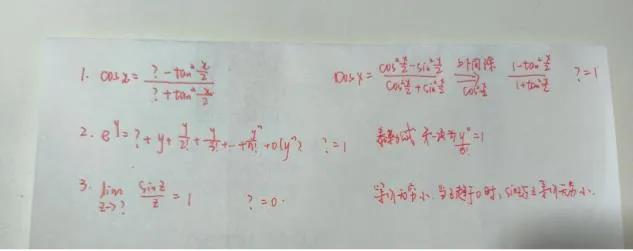 1. cosx = (? - tan² x/2) / (? + tan² x/2)  cosx = (cos² x/2 - sin² x/2) / (cos² x/2 + sin² x/2) 时间除 cos² x/2 → (1 - tan² x/2) / (1 + tan² x/2)  ? = 1
2. e^y = ? + y + y/2! + y/3! + … + yⁿ/n! + o(yⁿ)  ? = 1  泰勒公式 y⁰/0! = 1
3. lim z→? sinz/z = 1  ? = 0.  等价无穷小. 当z趋于0时, sinz与z等价无穷小.